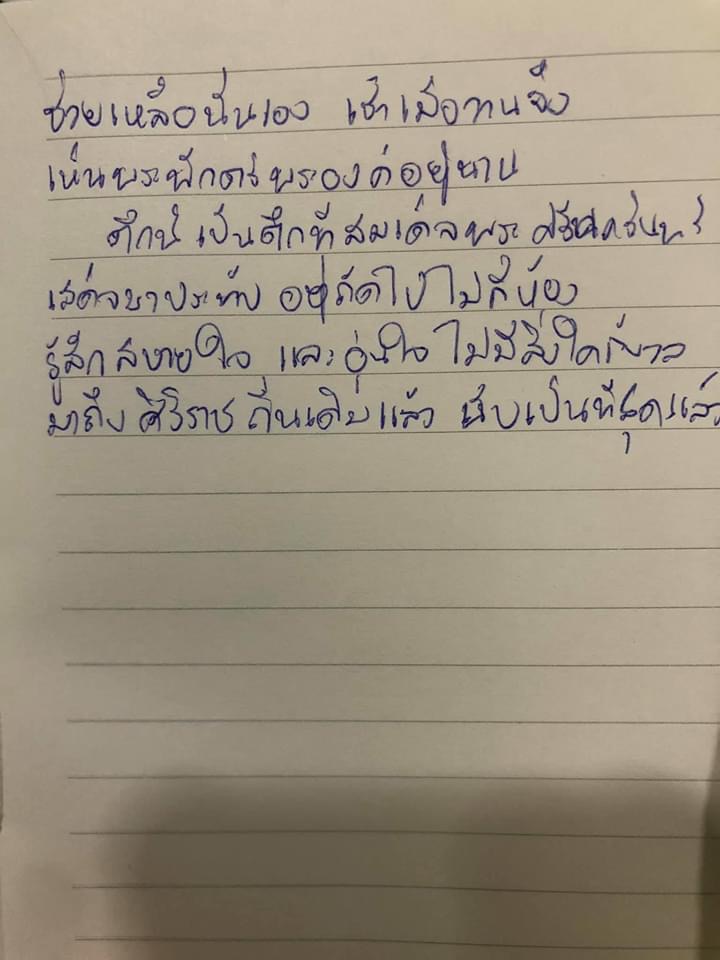 ช่วยเหลือนั่นเอง เช้าเมื่อวานจึง
เห็นพระพักตร์พระองค์อยู่นาน
ตึกนี้ เป็นตึกที่สมเด็จพระศรีนครินทร์
เสด็จมาประทับ อยู่ถัดไปไม่กี่ห้อง
รู้สึกสบายใจ และอุ่นใจ ไม่มีสิ่งใดกังวล
มาถึง ศิริราช ถิ่นเดิมแล้ว นับเป็นที่สุดแล้ว